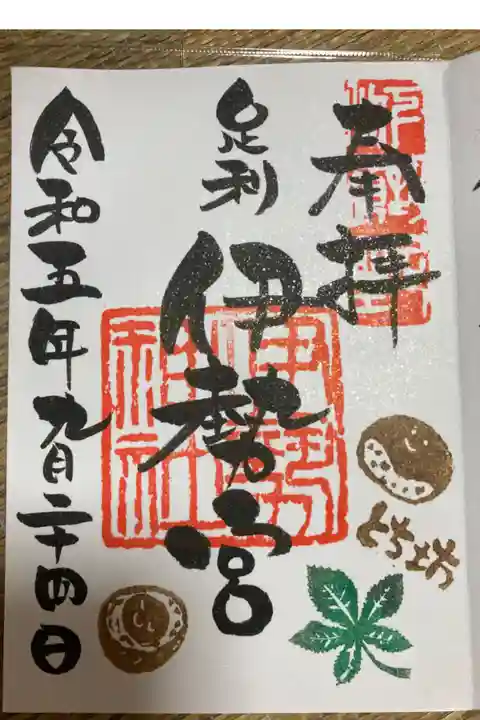 奉拝
足利
伊勢宮
伊勢
神社
令和五年九月二十四日
とち坊